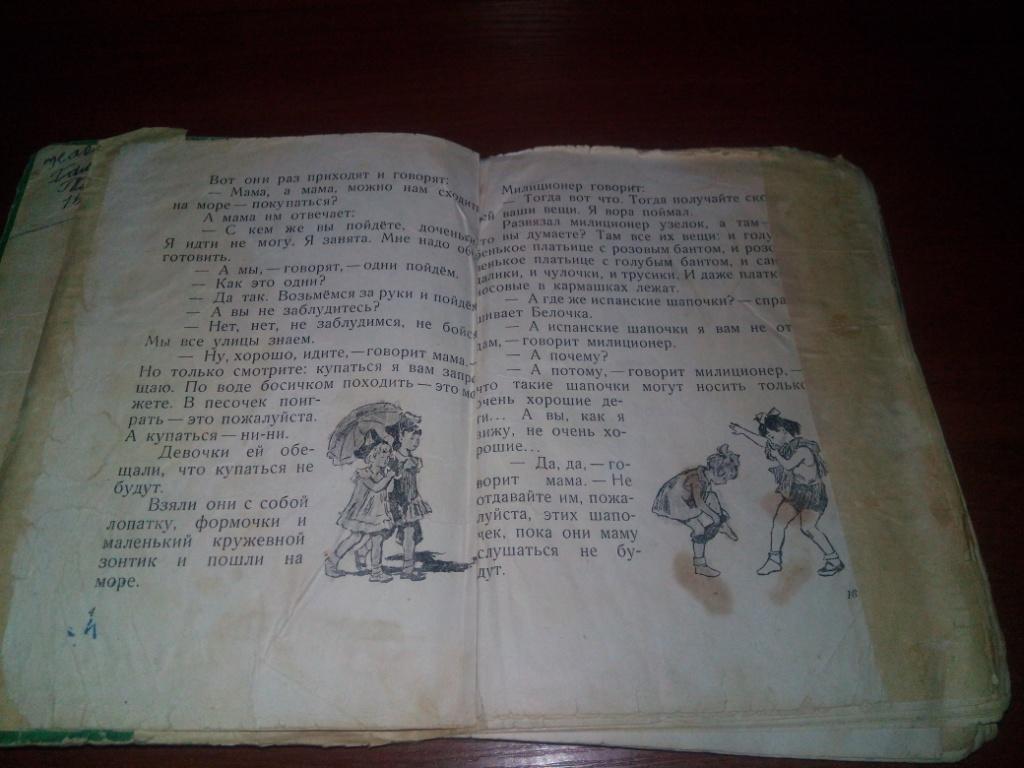 Вот они раз приходят и говорят:
— Мама, а мама, можно нам сходить
на море — покупаться?
А мама им отвечает:
— С кем же вы пойдёте, доченьки
Я идти не могу. Я занята. Мне надо об
готовить.
— А мы, — говорят, — одни пойдём.
— Как это одни?
— Да так. Возьмёмся за руки и пойдём
— А вы не заблудитесь?
— Нет, нет, не заблудимся, не бойся
Мы все улицы знаем.
— Ну, хорошо, идите, — говорит мама. —
Но только смотрите: купаться я вам запре
щаю. По воде босичком походить — это мо
жете. В песочек поиг-
рать — это пожалуйста.
А купаться — ни-ни.
Девочки ей обе-
щали, что купаться не
будут.
Взяли они с собой
лопатку, формочки и
маленький кружевной
зонтик и пошли на
море.
Милиционер говорит:
— Тогда вот что. Тогда получайте ско
ей ваши вещи. Я вора поймал.
Развязал милиционер узелок, а там —
то вы думаете? Там все их вещи: и голу
бенькое платьице с розовым бантом, и розо
венькое платьице с голубым бантом, и сан
далики, и чулочки, и трусики. И даже платк
носовые в кармашках лежат.
— А где же испанские шапочки? — спра
шивает Белочка.
— А испанские шапочки я вам не от
дам, — говорит милиционер.
— А почему?
— А потому, — говорит милиционер, —
что такие шапочки могут носить только
очень хорошие де-
ти... А вы, как я
вижу, не очень хо-
рошие...
— Да, да, — го-
ворит мама. — Не
отдавайте им, пожа-
луйста, этих шапо-
чек, пока они маму
слушаться не бу-
дут.